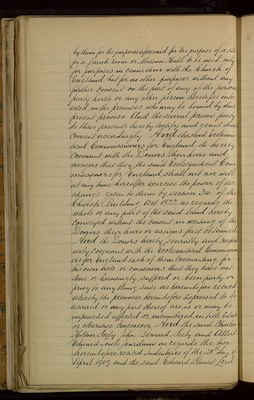 by them for the purposes aforesaid for the purpose of a site
for a parish room or Mission Hall to be used only
for purposes in connection with the Church of
England but for no other purposes without any
further consent on the part of any of the person
party hereto or any other person
in the premises who may be bound by this
present proviso And the several persons party
to these presents hereby testify and grant their
consent accordingly And the said Ecclesias-
tical Commissioners for England do hereby
Covenant with the Donors their heirs and
assigns that they the said Ecclesiastical Com-
missioners for England shall not nor will
at any time hereafter exercise the power of
given to them by section of the
Church Building Act 1822 as regards the
whole or any part of the said land hereby
conveyed without the consent in writing of the
Donors their heirs or assigns first obtained
And the Donors hereby severally and separ-
ately Covenant with the Ecclesiastical Commission-
ers for England each of them Covenanting for
his own acts or omissions that they have not
done or knowingly suffered or been party or
privy to any thing save as hereinbefore recited
whereby the premises hereinbefore expressed to be
assured or any part thereof are is or may be
impeached affected or incumbered in title estate
or otherwise howsoever And the said Charles
Seely and Albert
Edward as regards the
hereinbefore recited Indentures of the day of
April 1909 and the said Edward Lord